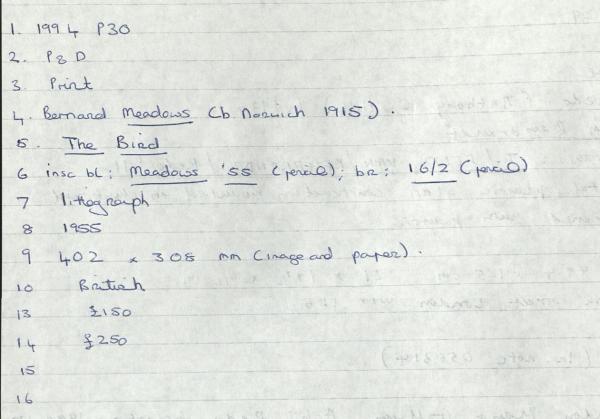 1. 1994 P30
2. P&D
3 Print
4. Bernard Meadows (b. Norwich 1915).
5. The Bird
6 insc bL; Meadows '55 (pencil); bR; 16/2 (pencil)
7 lithograph
8 1955
9 402 x 308 mm (image and paper).
10 British
13 £150
14 £250
15
16